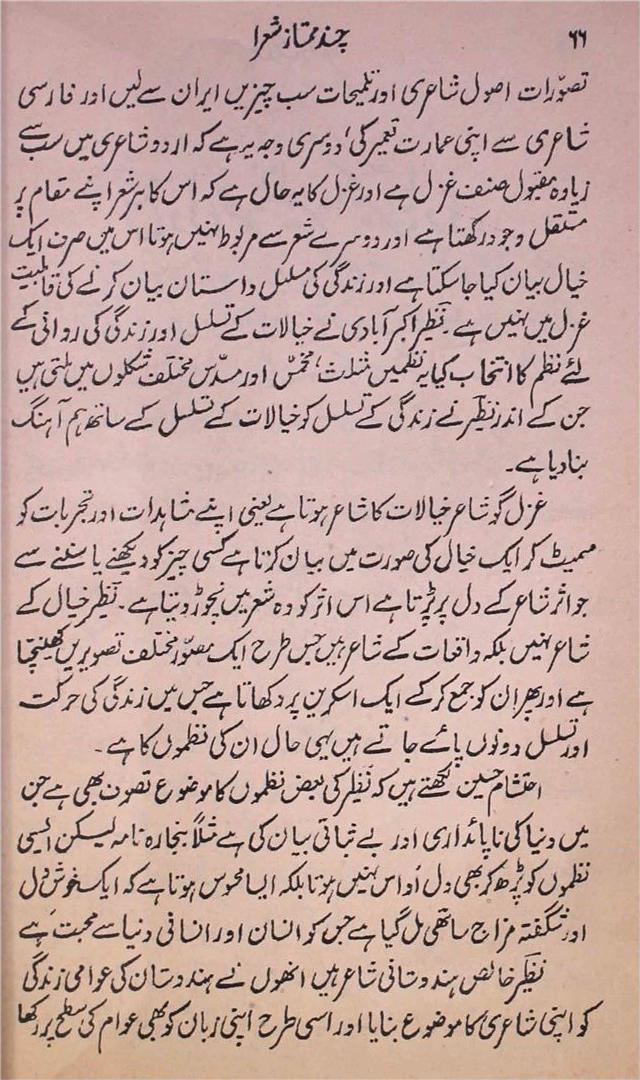 ۶۶
چند ممتاز شعرا
تصوّرات اصول شاعری اور تلمیحات سب چیزیں ایران سے لیں اور فارسی
شاعری سے اپنی عمارت تعمیر کی، دوسری وجہ یہ ہے کہ اردو شاعری میں سب سے
زیادہ مقبول صنف غزل ہے اور غزل کا یہ حال ہے کہ اس کا ہر شعر اپنے مقام پر
مستقل وجود رکھتا ہے اور دوسرے شعر سے مربوط نہیں ہوتا اس میں صرف ایک
خیال بیان کیا جا سکتا ہے اور زندگی کی مسلسل داستان بیان کرنے کی قابلیت
غزل میں نہیں ہے۔ نظیر اکبر آبادی نے خیالات کے تسلسل اور زندگی کی روانی کے
لئے نظم کا انتخاب کیا یہ نظمیں مثلث، مخمّس اور مسدّس مختلف شکلوں میں ملتی ہیں
جن کے اندر نظیر نے زندگی کے تسلسل کو خیالات کے تسلسل کے ساتھ ہم آہنگ
بنا دیا ہے۔
غزل گو شاعر خیالات کا شاعر ہوتا ہے یعنی اپنے مشاہدات اور تجربات کو
سمیٹ کر ایک خیال کی صورت میں بیان کرتا ہے کسی چیز کو دیکھنے یا سننے سے
جو اثر شاعر کے دل پر پڑتا ہے اس اثر کو وہ شعر میں نچوڑ دیتا ہے۔ نظیر خیال کے
شاعر نہیں بلکہ واقعات کے شاعر ہیں جس طرح ایک مصوّر مختلف تصویریں کھینچتا
ہے اور پھر ان کو جمع کر کے ایک اسکرین پر دکھاتا ہے جس میں زندگی کی حرکت
اور تسلسل دونوں پائے جاتے ہیں یہی حال ان کی نظموں کا ہے۔
احتشام حسین لکھتے ہیں کہ نظیر کی بعض نظموں کا موضوع تصوف بھی ہے جن
میں دنیا کی ناپائداری اور بے ثباتی بیان کی ہے مثلاً بنجارہ نامہ لیکن ایسی
نظموں کو پڑھ کر بھی دل اُداس نہیں ہوتا بلکہ ایسا محسوس ہوتا ہے کہ ایک خوش دل
اور شگفتہ مزاج ساتھی مل گیا ہے جس کو انسان اور انسانی دنیا سے محبت ہے
نظیر خالص ہندوستانی شاعر ہیں انھوں نے ہندوستان کی عوامی زندگی
کو اپنی شاعری کا موضوع بنایا اور اسی طرح اپنی زبان کو بھی عوام کی سطح پر رکھا